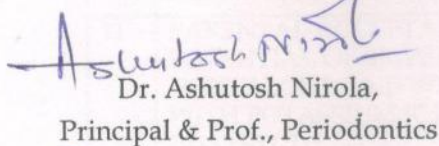 Ashutosh Nirola
Dr. Ashutosh Nirola,
Principal & Prof., Periodontics